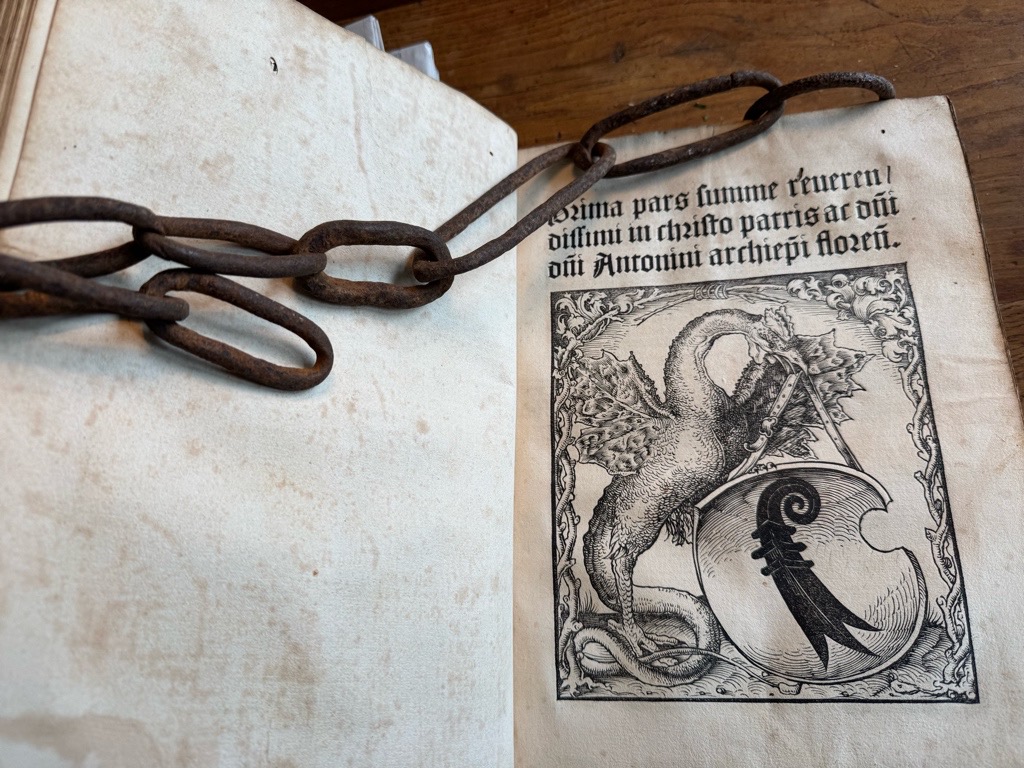 Prima pars summe reueren/
dissimi in christo patris ac dñi
dñi Antonini archiep̃i floreñ.